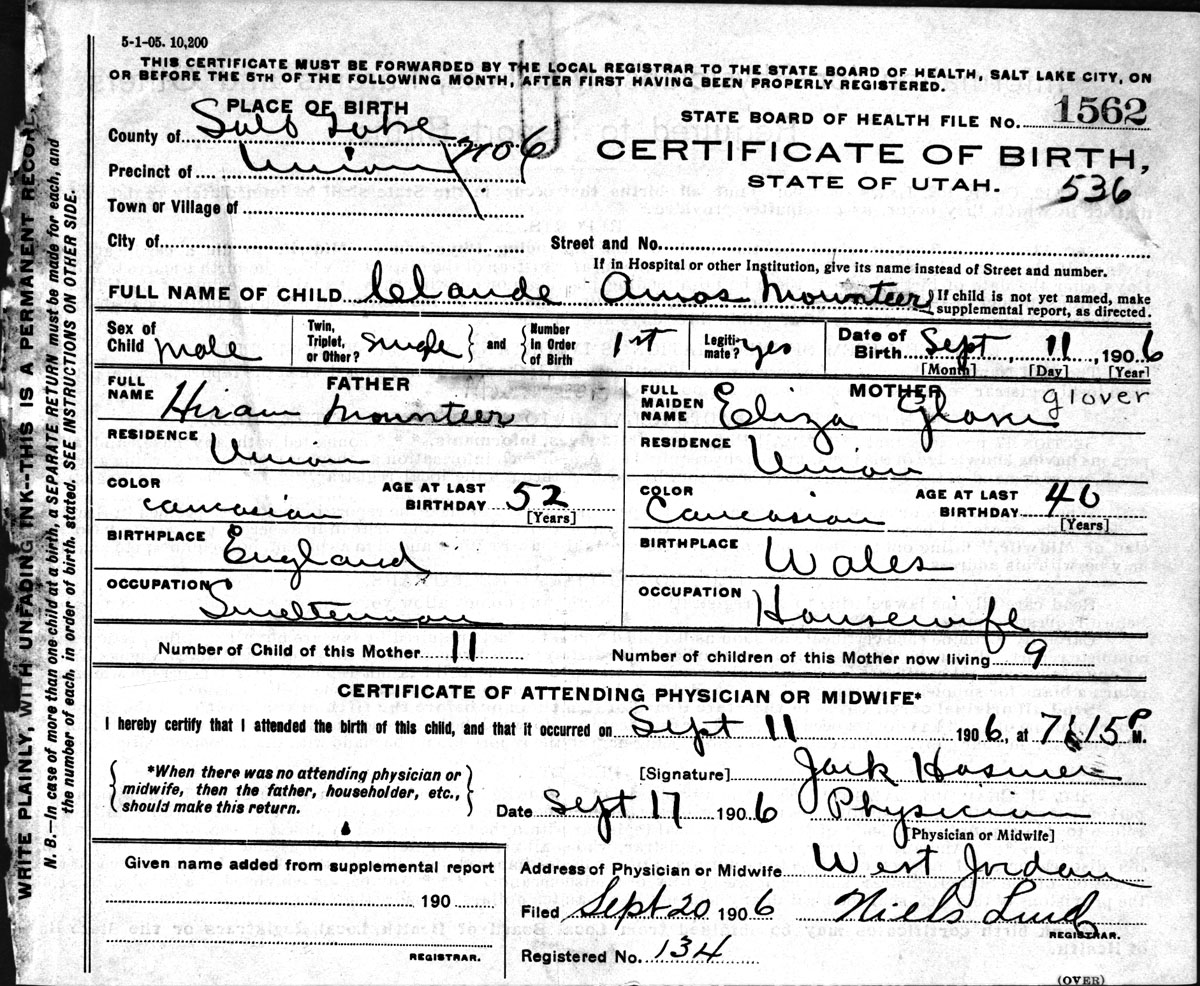 5-1-05. 10,200
THIS CERTIFICATE MUST BE FORWARDED BY THE LOCAL REGISTRAR TO THE STATE BOARD OF HEALTH, SALT LAKE CITY, ON
OR BEFORE THE 5TH OF THE FOLLOWING MONTH, AFTER FIRST HAVING BEEN PROPERLY REGISTERED.
PLACE OF BIRTH
STATE BOARD OF HEALTH FILE No. 1562
County of Salt Lake
CERTIFICATE OF BIRTH,
Precinct of Union no 6
STATE OF UTAH.
536
Town or Village of
City of Street and No.
If in Hospital or other Institution, give its name instead of Street and number.
FULL NAME OF CHILD Claude Amos Mounteer If child is not yet named, make
supplemental report, as directed.
Sex of Child Male Twin, Triplet, or Other? Single and Number in Order of Birth 1st Legiti-mate? yes Date of Birth Sept, 11, 1906
[Month] [Day] [Year]
FULL NAME FATHER Hiram Mounteer
RESIDENCE Union
COLOR Caucasian AGE AT LAST BIRTHDAY 52
[Years]
BIRTHPLACE England
OCCUPATION Smelterman
FULL MAIDEN NAME MOTHER Eliza Glover glover
RESIDENCE Union
COLOR Caucasian AGE AT LAST BIRTHDAY 46
[Years]
BIRTHPLACE Wales
OCCUPATION Housewife
Number of Child of this Mother 11 Number of children of this Mother now living 9
CERTIFICATE OF ATTENDING PHYSICIAN OR MIDWIFE*
I hereby certify that I attended the birth of this child, and that it occurred on Sept 11 1906, at 7:15 P M.
*When there was no attending physician or
midwife, then the father, householder, etc.,
should make this return.
[Signature] Jack Hosmer
Date Sept 17 1906 Physician
[Physician or Midwife]
Given name added from supplemental report
190
REGISTRAR.
Address of Physician or Midwife West Jordan
Filed Sept 20 1906 Niels Lind
REGISTRAR.
Registered No. 134
(OVER)
WRITE PLAINLY, WITH UNFADING INK—THIS IS A PERMANENT RECORD.
N. B.—In case of more than one child at a birth, a SEPARATE RETURN must be made for each, and
the number of each, in order of birth, stated. SEE INSTRUCTIONS ON OTHER SIDE.